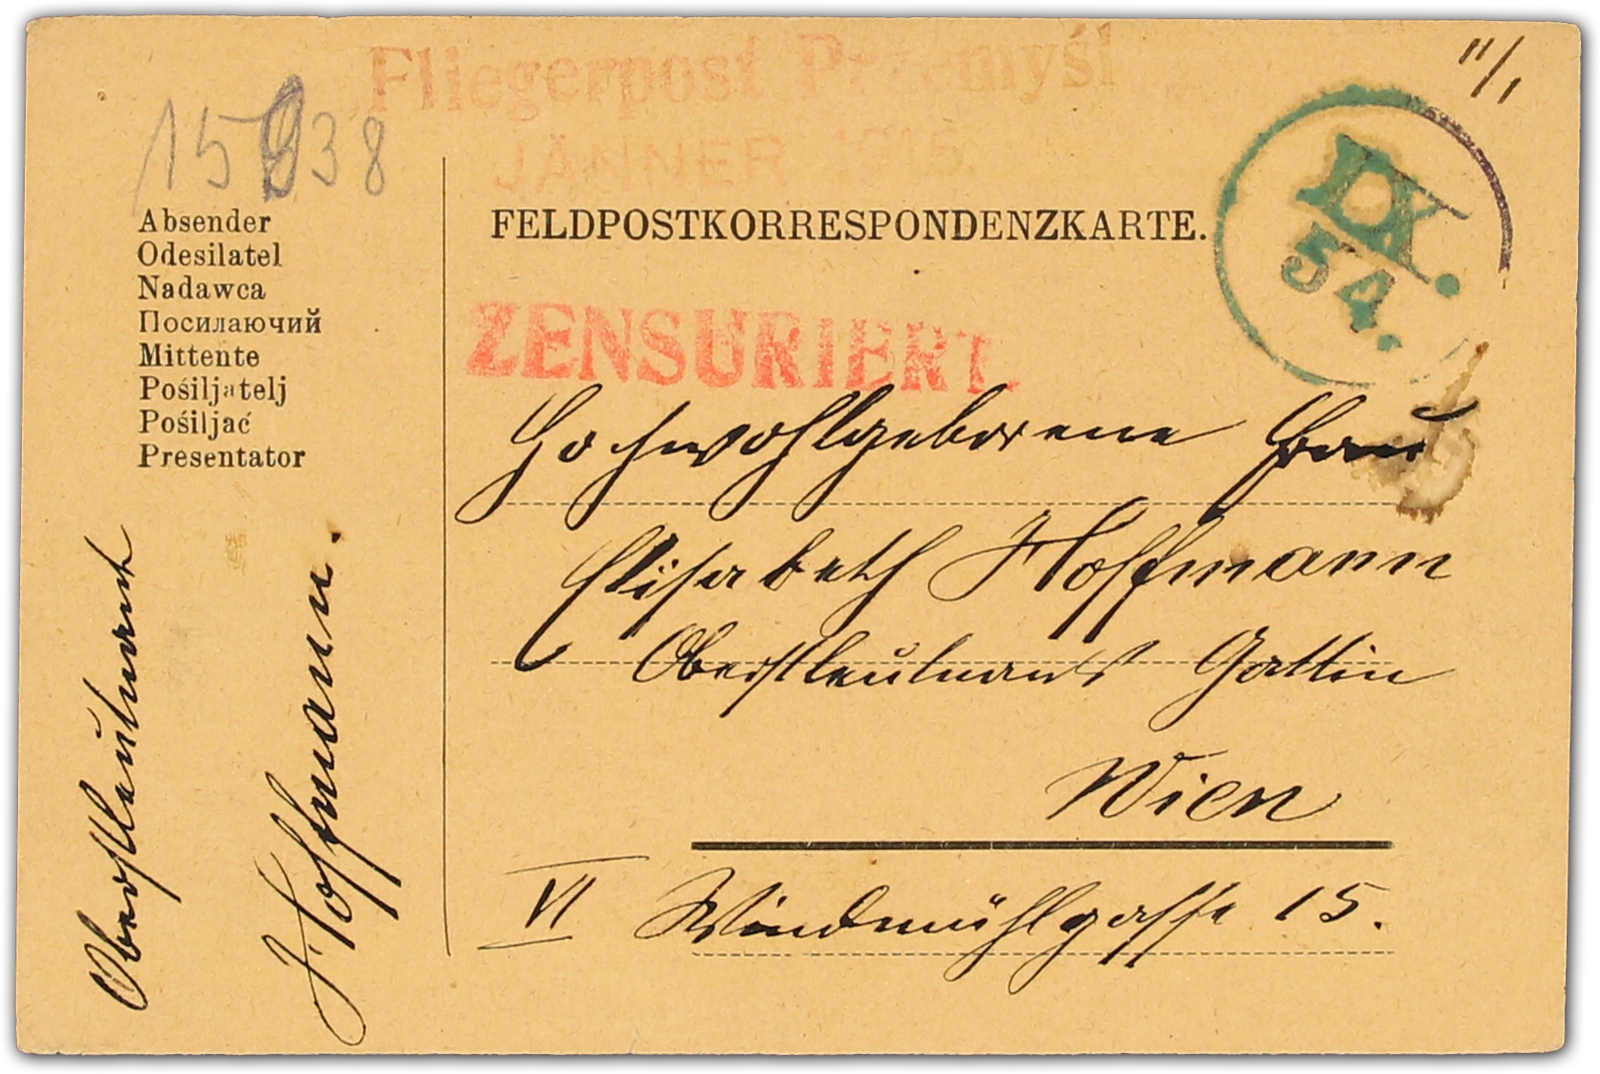 Fliegerpost Przemyśl
JÄNNER 1915.
11/1
15 38
IX.
54.
Absender
Odesilatel
Nadawca
Посилаючий
Mittente
Pośiljatelj
Pośiljać
Presentator
FELDPOSTKORRESPONDENZKARTE.
ZENSURIERT.
Hochwohlgeborene Frau
Elisabeth Hoffmann
Oberstleutnants Gattin
Wien
VI Windmühlgasse 15.
Oberstleutnant
Hoffmann.